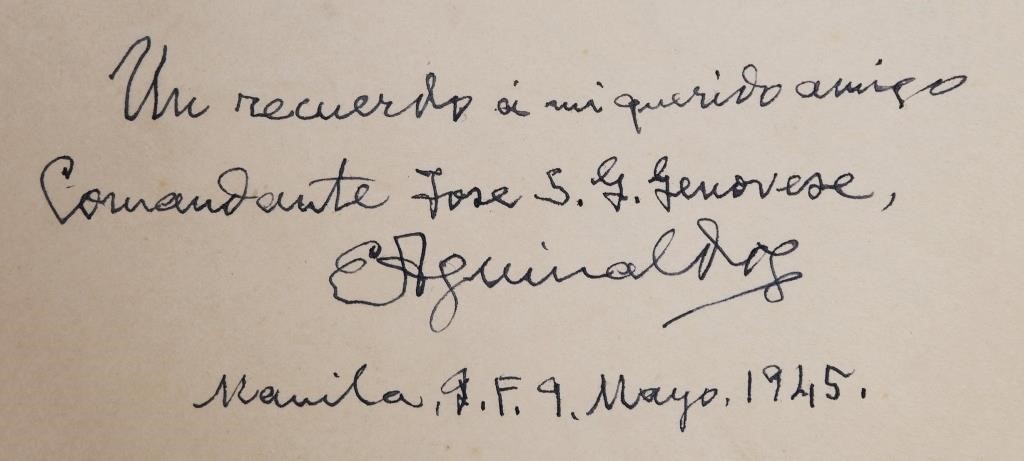 Un recuerdo á mi querido amigo
Comandante Jose S. G. Genovese,
EAguinaldo
Manila, I.F. 9. Mayo. 1945.